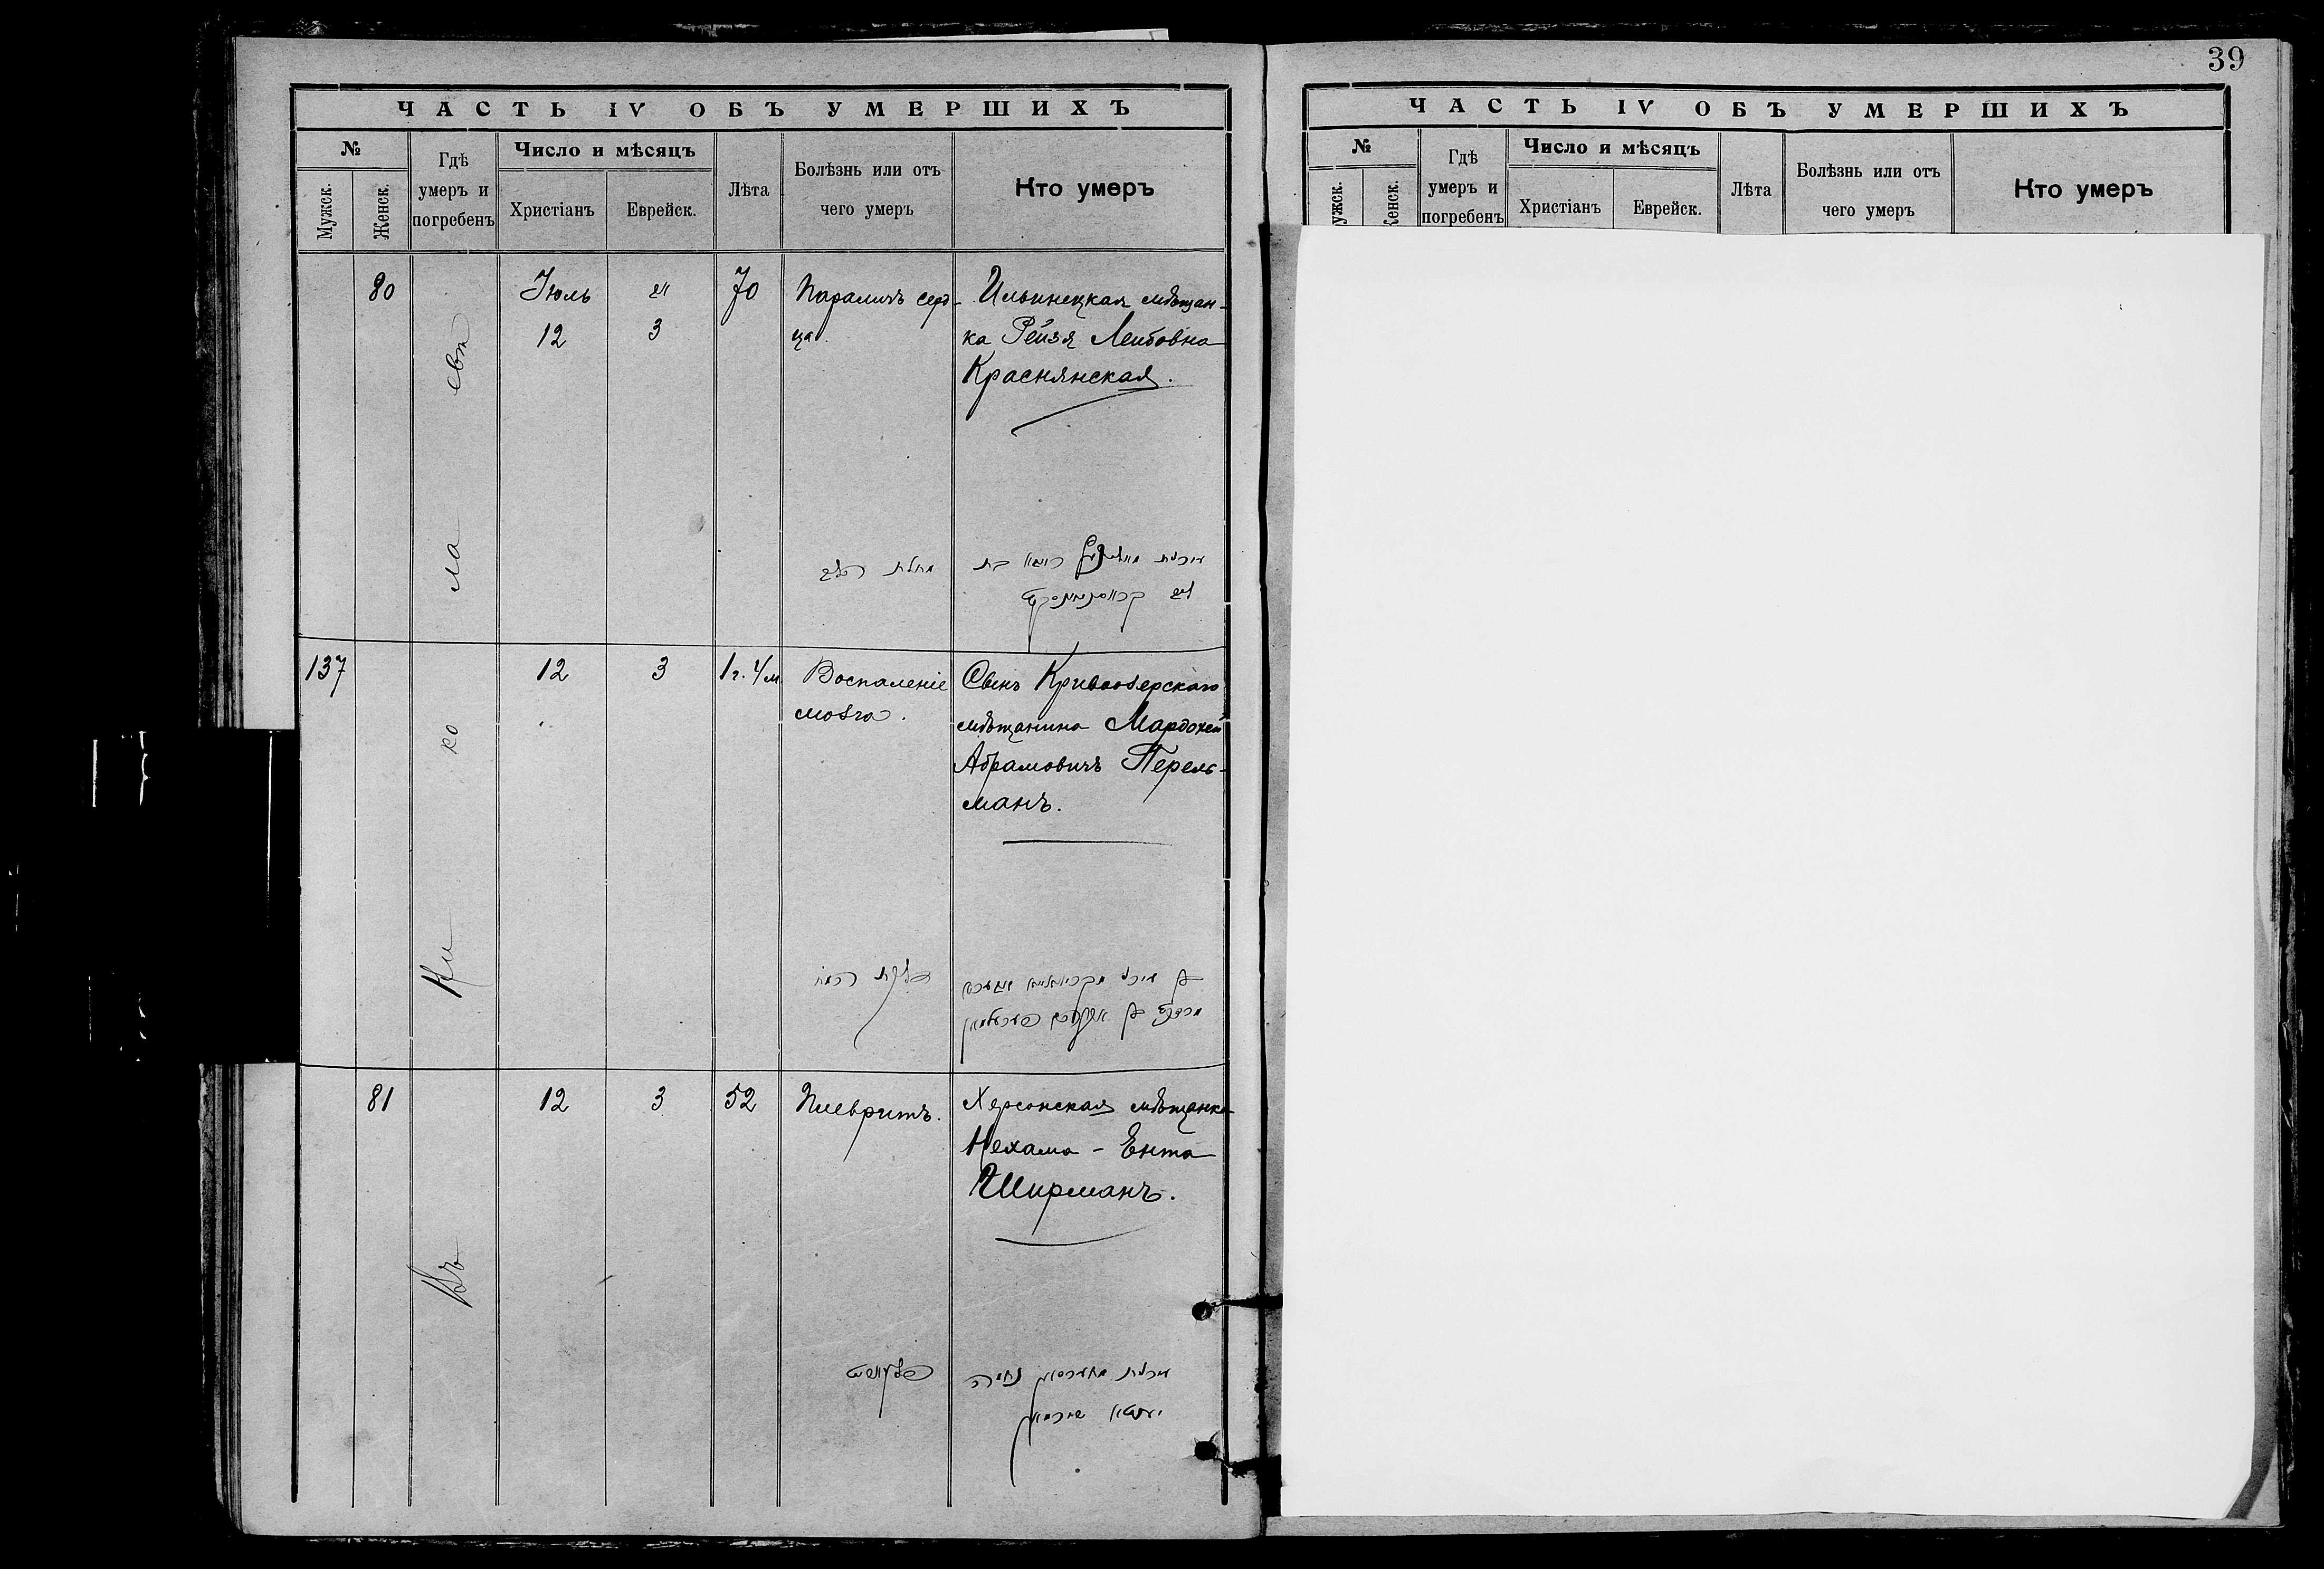 ЧАСТЬ IV ОБЪ УМЕРШИХЪ
№
Мужск.
Женск.
Гдѣ умеръ и погребенъ
Число и мѣсяцъ
Христіанъ
Еврейск.
Лѣта
Болѣзнь или отъ чего умеръ
Кто умеръ
Въ Николаевѣ
80
Іюль
12
3
70
Параличъ серд-
ца.
Ильинецкая мѣщан-
ка Рейзя Лейбовна
Краснянская.
137
12
3
1 г. 4 м.
Воспаленіе
мозга.
Сынъ Кривоозерскаго
мѣщанина Мардохей
Абрамовичъ Перель-
манъ.
דלקת המח
81
12
3
52
Плевритъ.
Херсонская мѣщанка
Нехама - Ента
Ширманъ.
39
ЧАСТЬ IV ОБЪ УМЕРШИХЪ
№
ужск.
енск.
Гдѣ умеръ и погребенъ
Число и мѣсяцъ
Христіанъ
Еврейск.
Лѣта
Болѣзнь или отъ чего умеръ
Кто умеръ